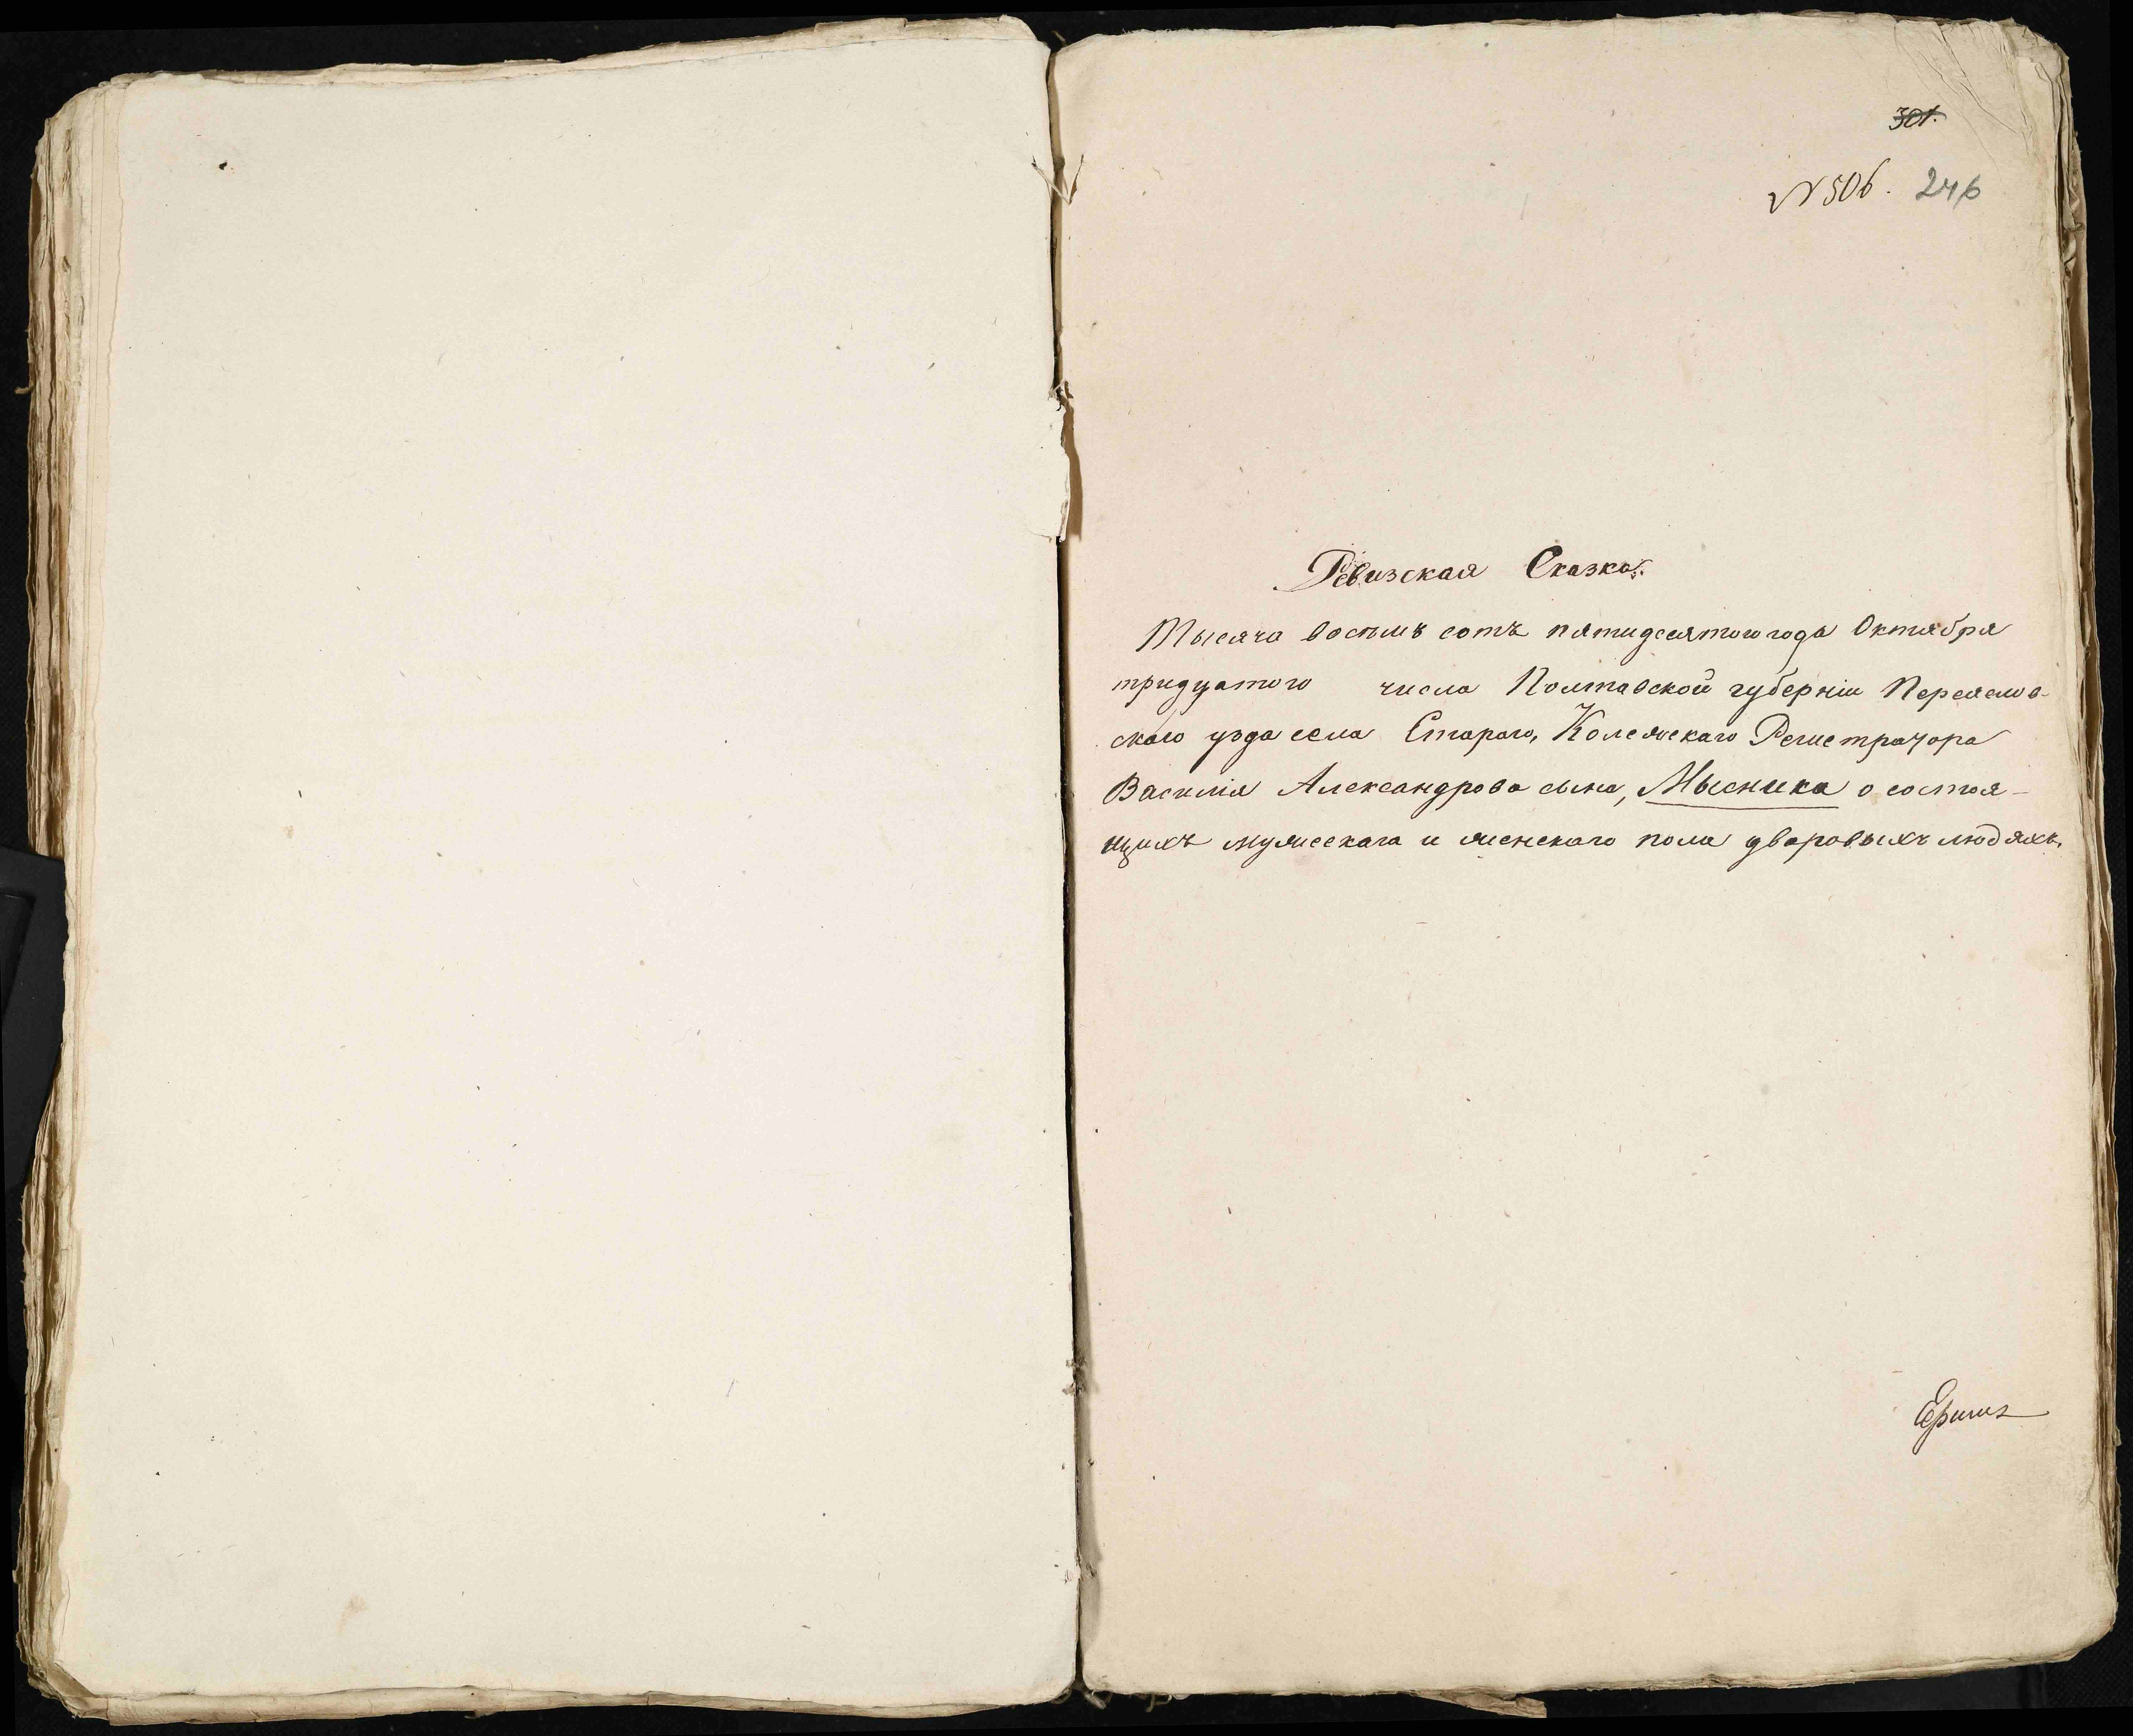 301.
№ 506. 246
Ревизская Сказка.
Тысяча восемь сотъ пятидесятого года Октября
тридцатого числа Полтавской губерніи Переяслов-
скаго уѣзда села Старого, Колежскаго Регистратора
Василія Александрова сына, Мысника о состоя-
щихъ мужескаго и женскаго пола дворовыхъ людяхъ.